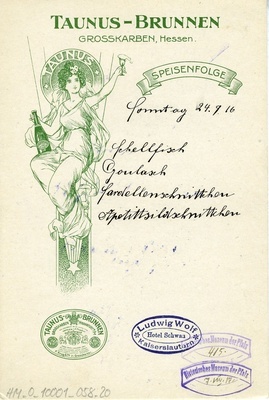 TAUNUS-BRUNNEN
GROSSKARBEN, Hessen.
TAUNUS
SPEISENFOLGE
Sonntag 24.9.16
Schellfisch
Goulasch
Sardellenschnittchen
Apetittsildschnittchen
TAUNUS-BRUNNEN
Ludwig Wolf
Hotel Schwan
Kaiserslautern
Historisches Museum der Pfalz
415
Historisches Museum der Pfalz
HM_0_10001_058.20